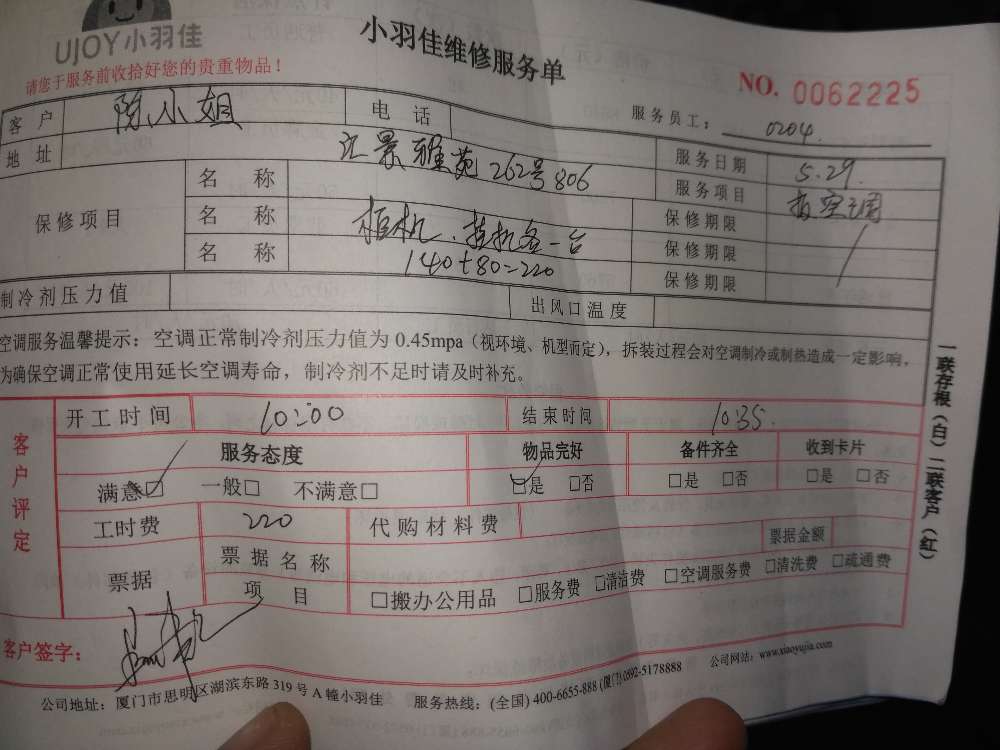 UJOY小羽佳
小羽佳维修服务单
请您于服务前收拾好您的贵重物品！
NO. 0062225
服务员工： 0204
客 户 陈小姐 电 话
地 址 汇景雅苑262号806 服务日期 5.29
服务项目
保修项目
名 称 保修期限
名 称 柜机、挂机各一台 保修期限
名 称 140+80=220 保修期限
制冷剂压力值 出风口温度
空调服务温馨提示：空调正常制冷剂压力值为0.45mpa（视环境、机型而定），拆装过程会对空调制冷或制热造成一定影响，
为确保空调正常使用延长空调寿命，制冷剂不足时请及时补充。
一联存根（白）二联客户（红）
客户评定
开工时间 10:00 结束时间 10:35
服务态度 物品完好 备件齐全 收到卡片
满意☑ 一般□ 不满意□ ☑是 □否 □是 □否 □是 □否
工时费 220 代购材料费
票据 票据名称 票据金额
项 目 □搬办公用品 □服务费 □清洁费 □空调服务费 □清洗费 □疏通费
客户签字：
公司地址：厦门市思明区湖滨东路319号A幢小羽佳 服务热线：(全国) 400-6655-888 (厦门) 0592-5178888 公司网站：www.xiaoyujia.com